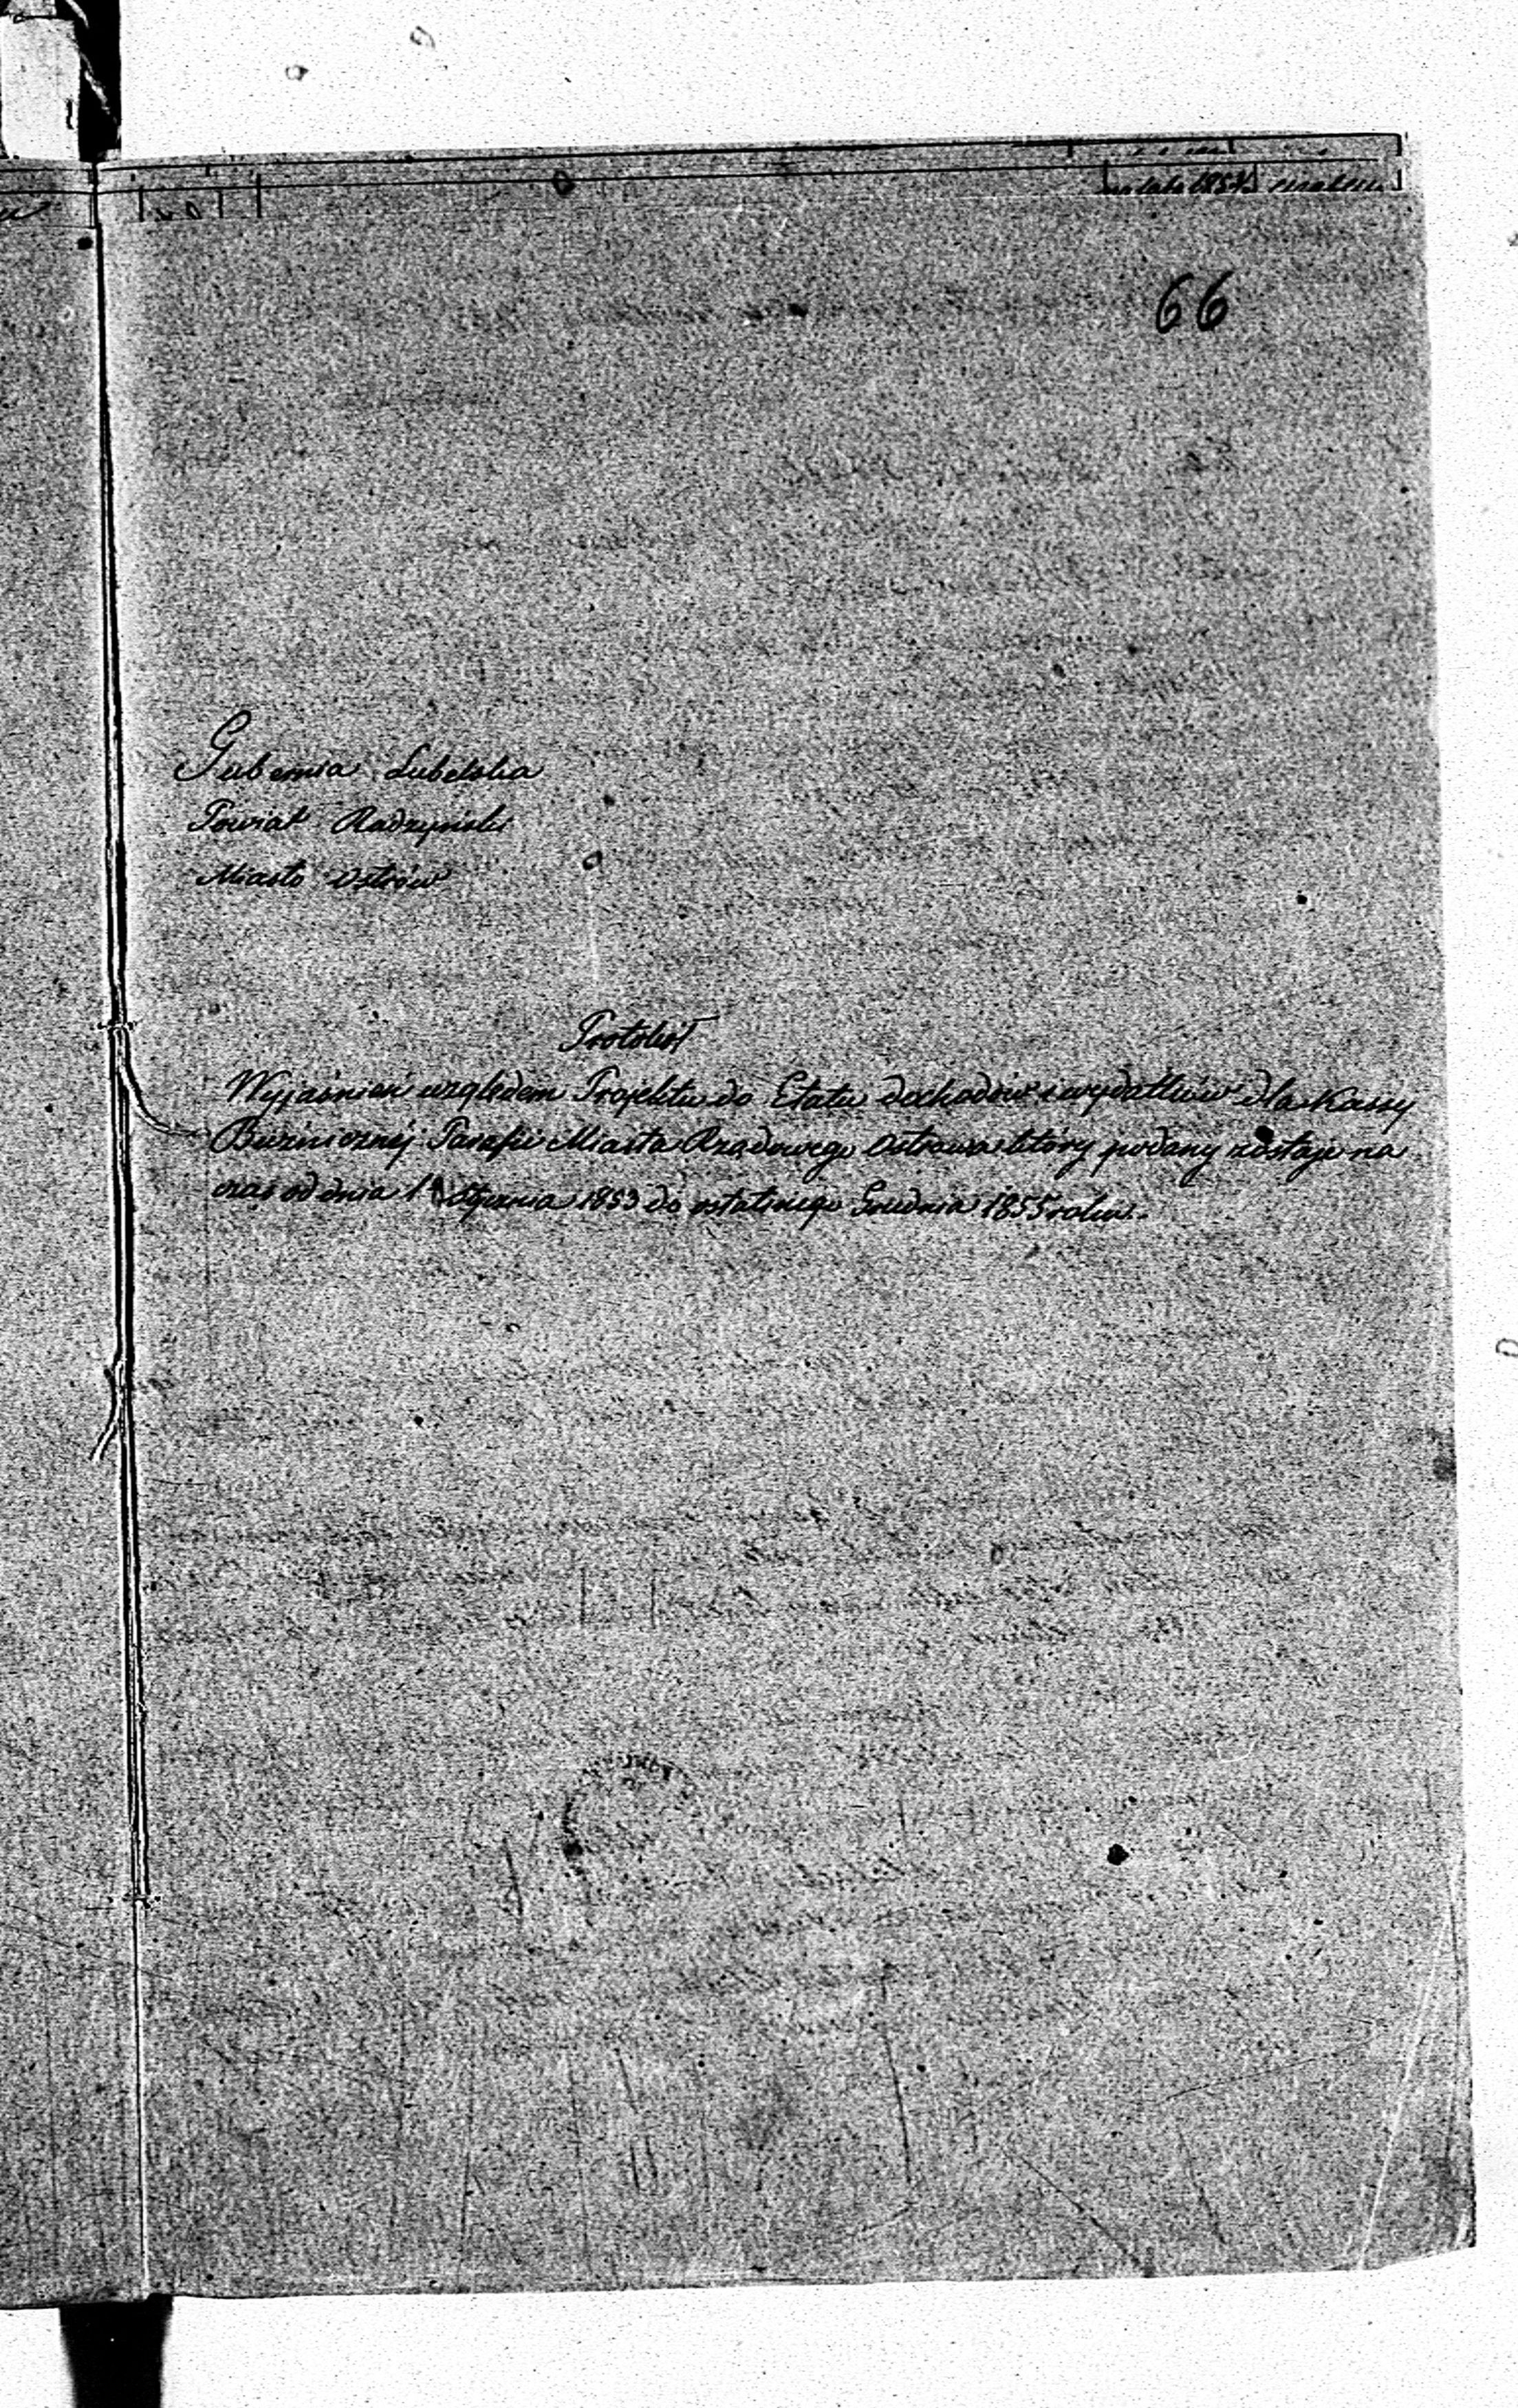 na lata 1853/5
66
Gubernia Lubelska
Powiat Radzyński
Miasto Ostrów
Protokół
Wyjaśnień względem Projektu do Etatu dochodów i wydatków dla Kassy
Bużniczniéj Parafii Miasta Rządowego Ostrowa który podany zostaje na
czas od dnia 1 Stycznia 1853 do ostatniego Grudnia 1855 roku.